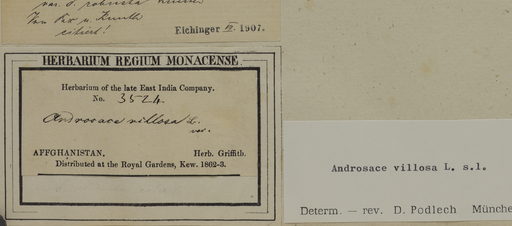 var. γ. robusta Knuth
Von Pax u. Knuth
citiert!
Eichinger IV. 1907.
HERBARIUM REGIUM MONACENSE
Herbarium of the late East India Company.
No. 3524.
Androsace villosa L.
var.
AFFGHÁNISTAN. Herb. Griffith.
Distributed at the Royal Gardens, Kew. 1862-3.
Androsace villosa L. s.l.
Determ. — rev. D. Podlech Münche